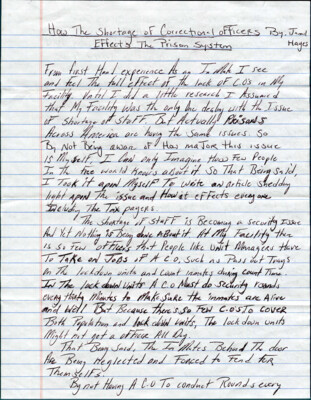 How The Shortage of Correctional officers By. Jamel
Effects The Prison System Hayes
From first Hand experience As an InMate I see
and feel the full effect of the lack of C.O's in My
Facility. Until I did a little research I Assumed
that My Facility was the only one dealing with the Issue
of shortage of staff. But Actually PRISONS
Across America are having the Same issues. So
By Not Being aware of How major this issue
Is Myself, I can only Imagine how Few People
In the world know about it So That Being Said,
I Took it upon Myself To write an article shedding
light upon The issue and How it effects everyone
Including The Tax payers.
The Shortage of Staff is Becoming a security Issue
And Yet Nothing is Being done About it. At My Facility there
is so few officers that People like Unit Managers Have
To Take on Jobs of A C.O, such as Pass out Trays
On The lockdown units and Count inmates during count time.
In The lock down Units A C.O Must do security rounds
every thirty Minutes to Make sure the inmates are Alive
and Well But Because there's so Few C.O's To cover
Both Population and lock down Units, The lock down units
Might not get a officer All Day.
That Being Said, The InMates Behind The door
Are Being Neglected and Forced to Fend For
Themselfs.
By not Having A C.O To conduct Rounds every